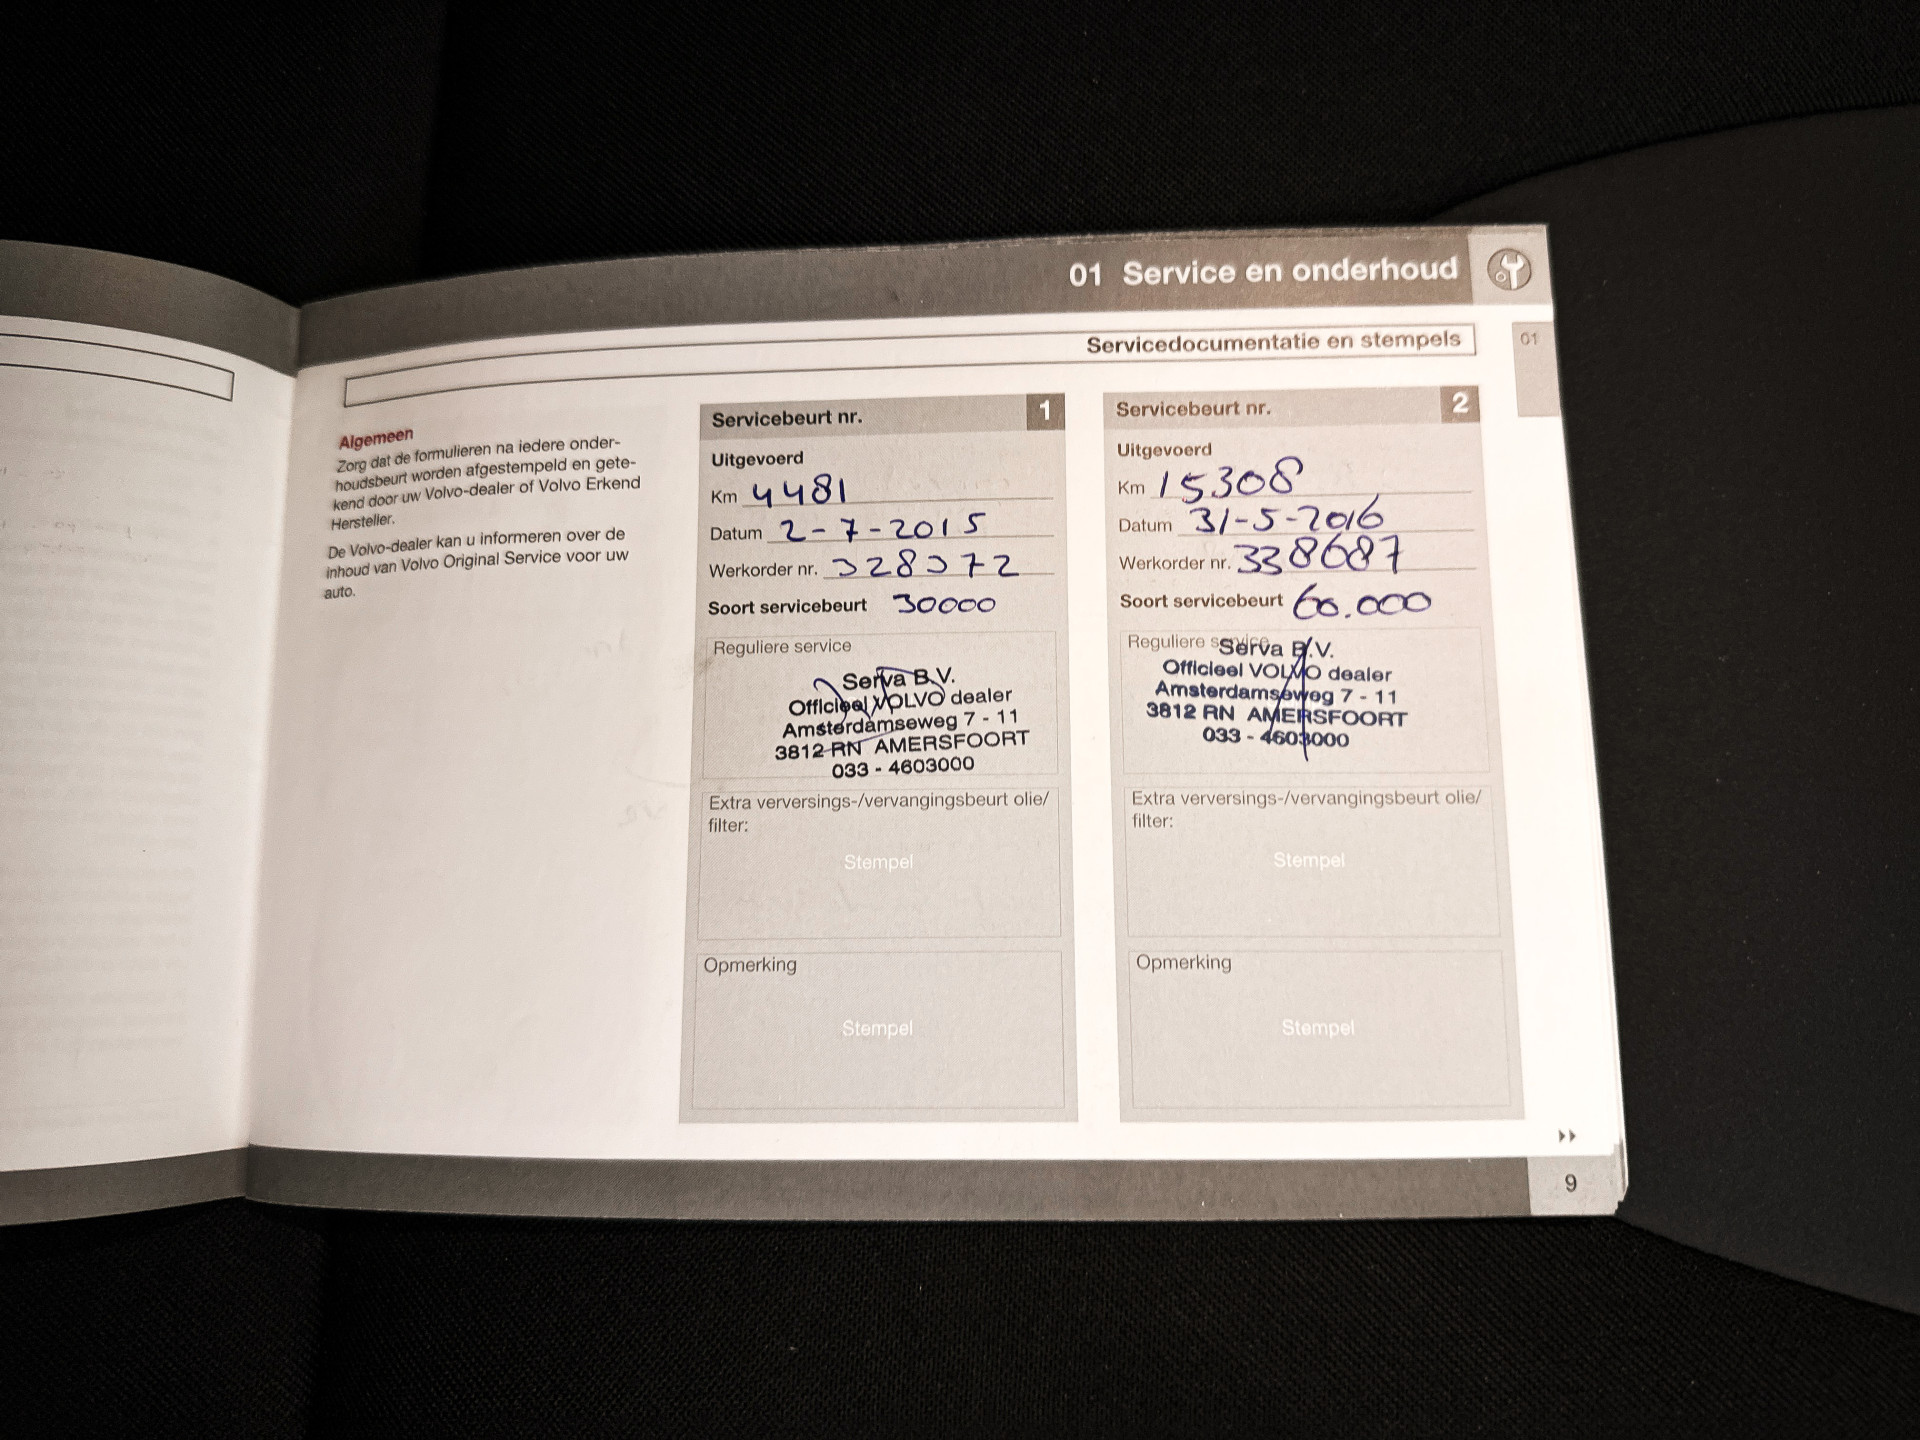 01 Service en onderhoud
Servicedocumentatie en stempels
01
Algemeen
Zorg dat de formulieren na iedere onder-
houdsbeurt worden afgestempeld en gete-
kend door uw Volvo-dealer of Volvo Erkend
Hersteller.
De Volvo-dealer kan u informeren over de
inhoud van Volvo Original Service voor uw
auto.
Servicebeurt nr. 1
Uitgevoerd
Km 4481
Datum 2-7-2015
Werkorder nr. 328372
Soort servicebeurt 30000
Reguliere service
Serva B.V.
Officieel VOLVO dealer
Amsterdamseweg 7 - 11
3812 RN AMERSFOORT
033 - 4603000
Extra verversings-/vervangingsbeurt olie/
filter:
Stempel
Opmerking
Stempel
Servicebeurt nr. 2
Uitgevoerd
Km 15308
Datum 31-5-2016
Werkorder nr. 338687
Soort servicebeurt 60.000
Reguliere service
Serva B.V.
Officieel VOLVO dealer
Amsterdamseweg 7 - 11
3812 RN AMERSFOORT
033 - 4603000
Extra verversings-/vervangingsbeurt olie/
filter:
Stempel
Opmerking
Stempel
9